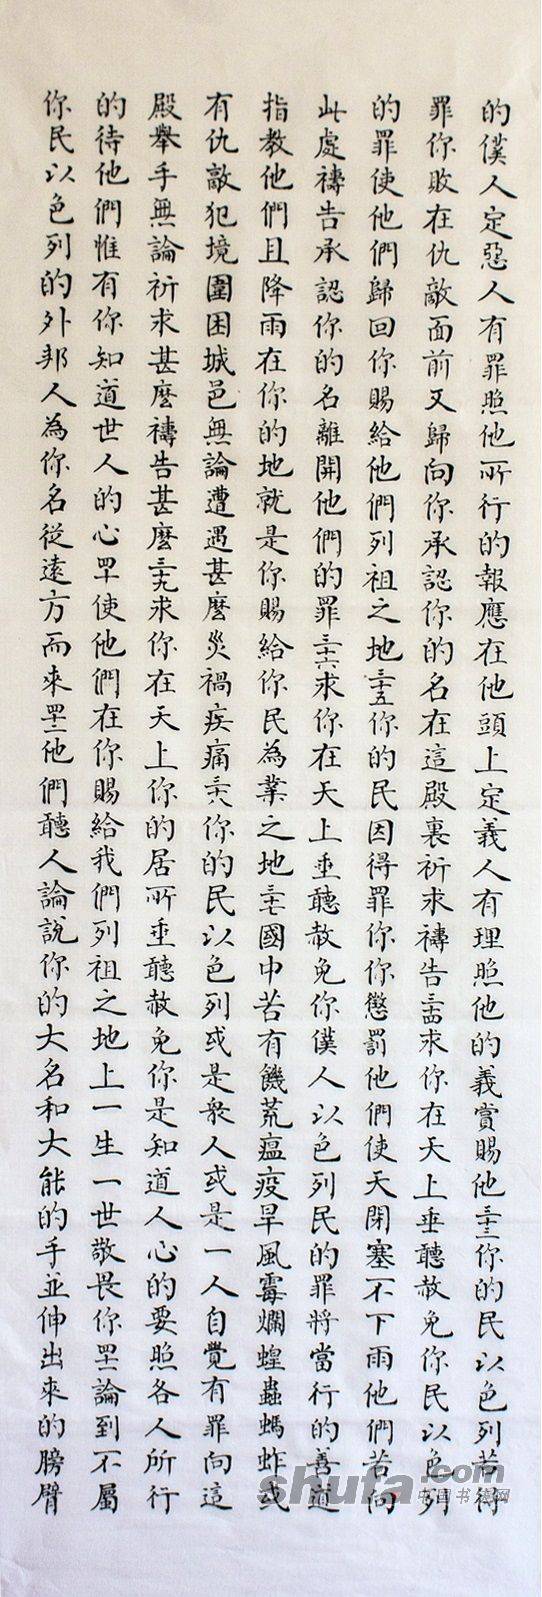 的僕人定惡人有罪照他所行的報應在他頭上定義人有理照他的義賞賜他三十三你的民以色列若得
罪你敗在仇敵面前又歸向你承認你的名在這殿裏祈求禱告三十四求你在天上垂聽赦免你民以色列
的罪使他們歸回你賜給他們列祖之地三十五你的民因得罪你你懲罰他們使天閉塞不下雨他們若向
此處禱告承認你的名離開他們的罪三十六求你在天上垂聽赦免你僕人以色列民的罪將當行的善道
指教他們且降雨在你的地就是你賜給你民為業之地三十七國中若有饑荒瘟疫旱風霉爛蝗蟲螞蚱或
有仇敵犯境圍困城邑無論遭遇甚麼災禍疾痛三十八你的民以色列或是衆人或是一人自覺有罪向這
殿舉手無論祈求甚麼禱告甚麼三十九求你在天上你的居所垂聽赦免你是知道人心的要照各人所行
的待他們惟有你知道世人的心四十使他們在你賜給我們列祖之地上一生一世敬畏你四十一論到不屬
你民以色列的外邦人為你名從遠方而來四十二他們聽人論說你的大名和大能的手並伸出來的膀臂
shufa.com
中国书法网